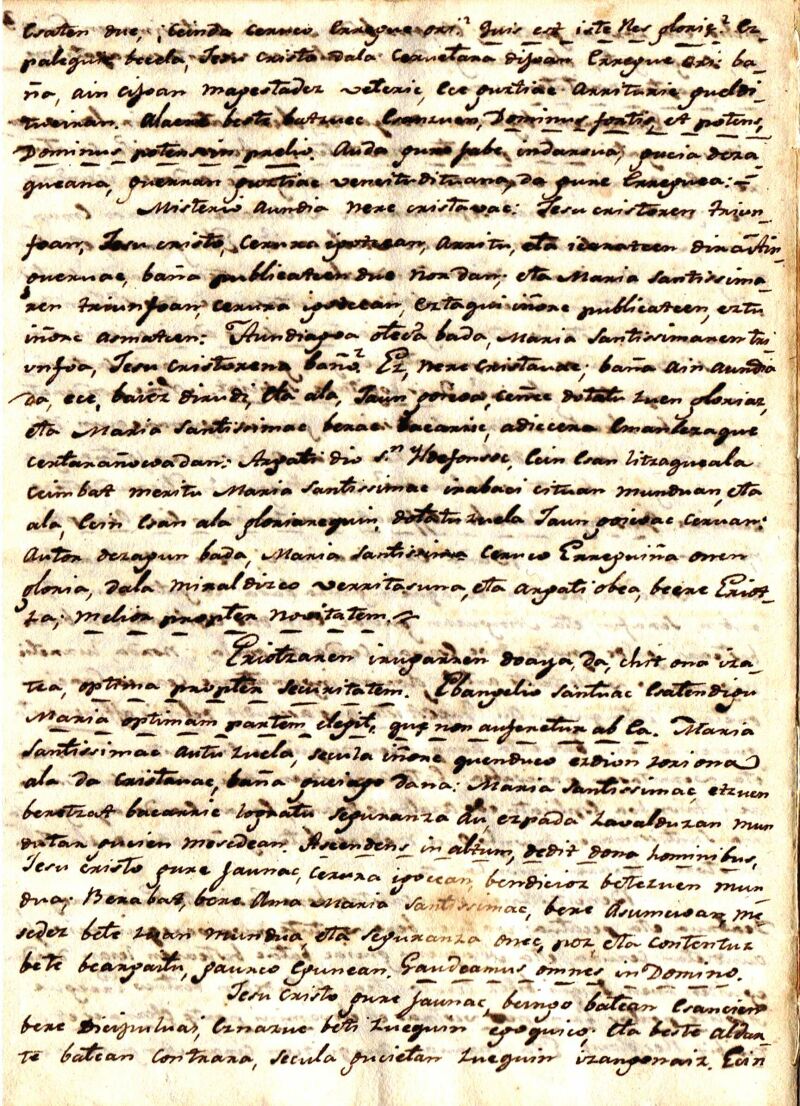 Esaten due, ¿ceinda ceruco Erregue ori? Quis est iste Rex gloriȩ? Ez
palequie becela, Jesu Cristo dala ceruetara dijoan Erregue ori: ba-
ña, ain cijoan magestadez veteric, ece guztiac arrituric gueldi-
tuciran. Alaere beste batzuec Esanzuen, Dominus fortis, et potens,
Dominus potens in prelio. Auda gure Jabe indarsua, gucia deza-
queana, guerran guztiac venzitu dituana, da gure Erreguea:
Misterio Aundia nere cristavac: Jesu cristoren triun-
foan, Jesu cristo, cerura igotzean, arritu, eta icaratcen dira Ain-
gueruac, baña publicatcen due ñor dan; eta Maria Santissima-
ren triunfoan, cerura igocean, eztaqui iñorc publicatcen, eztu
iñorc asmatcen. Aundiagoa otecra bada, Maria Santissimaren tri-
unfoa, Jesu Cristorena baño? Ez, nere cristavac; baña ain aundia
da, ece, baiez dirudi, eta ala, Jaun goicoa, cence dotatu zuen gloriaz,
eta Maria Santissimac berac bacarric, adiecera emantezaque
certarañocoa dan. Argati dio S.n Ildefonsoc, Ecin esan litzaqueala
ceimbat meritu Maria Santissimac irabaci cituan munduan, eta
ala, Ecin Esan ala gloriarequin, dotatu zuela Jaun goicoac ceruan:
Autor dezagun bada, Maria Santissima ceruco Erreguiña onen
gloria, dala miraldizco verritasuna, eta argati obea, beere Eriot-
za; melior propter novitatem.
Eriotzaren irugarren doaya, da, chit ona iza-
tea, optima propter securitatem. Ebangelio santuac Esatendigu
Maria optimam partem elegit, quȩ non auferetur ab ea. Maria
Santissimac artu zuela, secula iñorc quenduco ezdion zoriona
ala da cristavac, baña gueiago dana: Maria Santissimac, etzuen
beretzat bacarric logratu seguranza au, ezpada zavalduzan mun-
dutar gucien mesedean. Ascendens in altum, dedit dona hominibus,
Jesu Cristo gure Jaunac, cerura igocean, bendicioz betezuen mun-
dua; Berabaz, bere Ama Maria Santissimac, bere Asumcioan, me-
sedez bete zuan mundua, eta seguranza onec, poz, eta contentuz
bete bearpaitu, gaurco Egunean. Gaudeamus omnes in Domino.
Jesu Cristo gure Jaunac, beingo batean Esancien
bere Dicipuluai, Ernarue beti zuequin egoquico; eta beste aldar-
te batean contrara, secula gucietan zuequin izangonaiz. Ecin